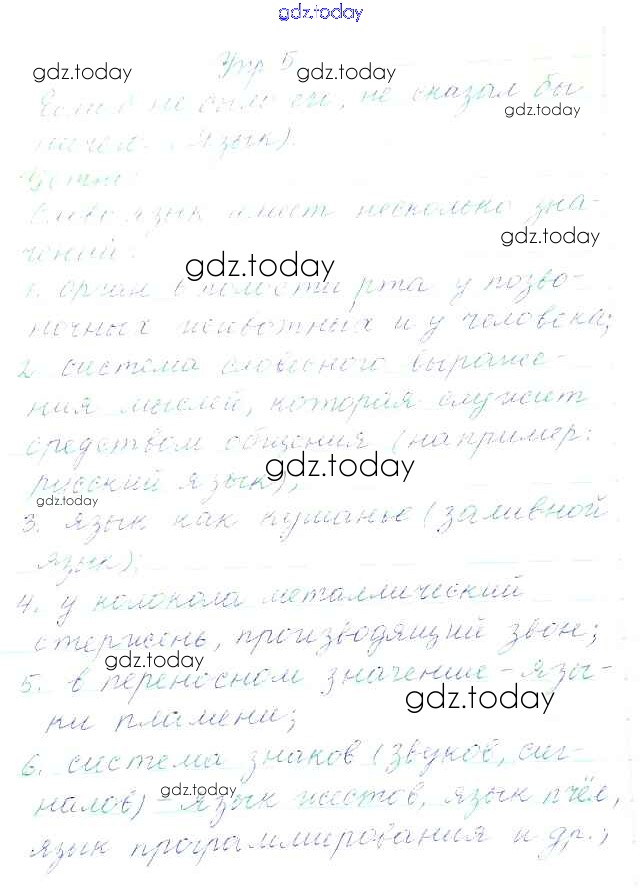 gdz.today
Упр 5
gdz.today gdz.today
Если б не было его, не сказал бы
gdz.today
ничего. (Язык).
Слово язык имеет несколько зна-
gdz.today
чений:
gdz.today
1. орган в полости рта у позво-
ночных животных и у человека;
2. система словесного выраже-
ния мыслей, которая служит
средством общения (например:
gdz.today
русский язык);
gdz.today
3. язык как кушанье (заливной
язык);
4. у колокола металлический
стержень, производящий звон;
gdz.today
5. в переносном значение - язы-
gdz.today
ки пламени;
6. система знаков (звуков, сиг-
gdz.today
налов) - язык жестов, язык пчёл,
язык программирования и др.;